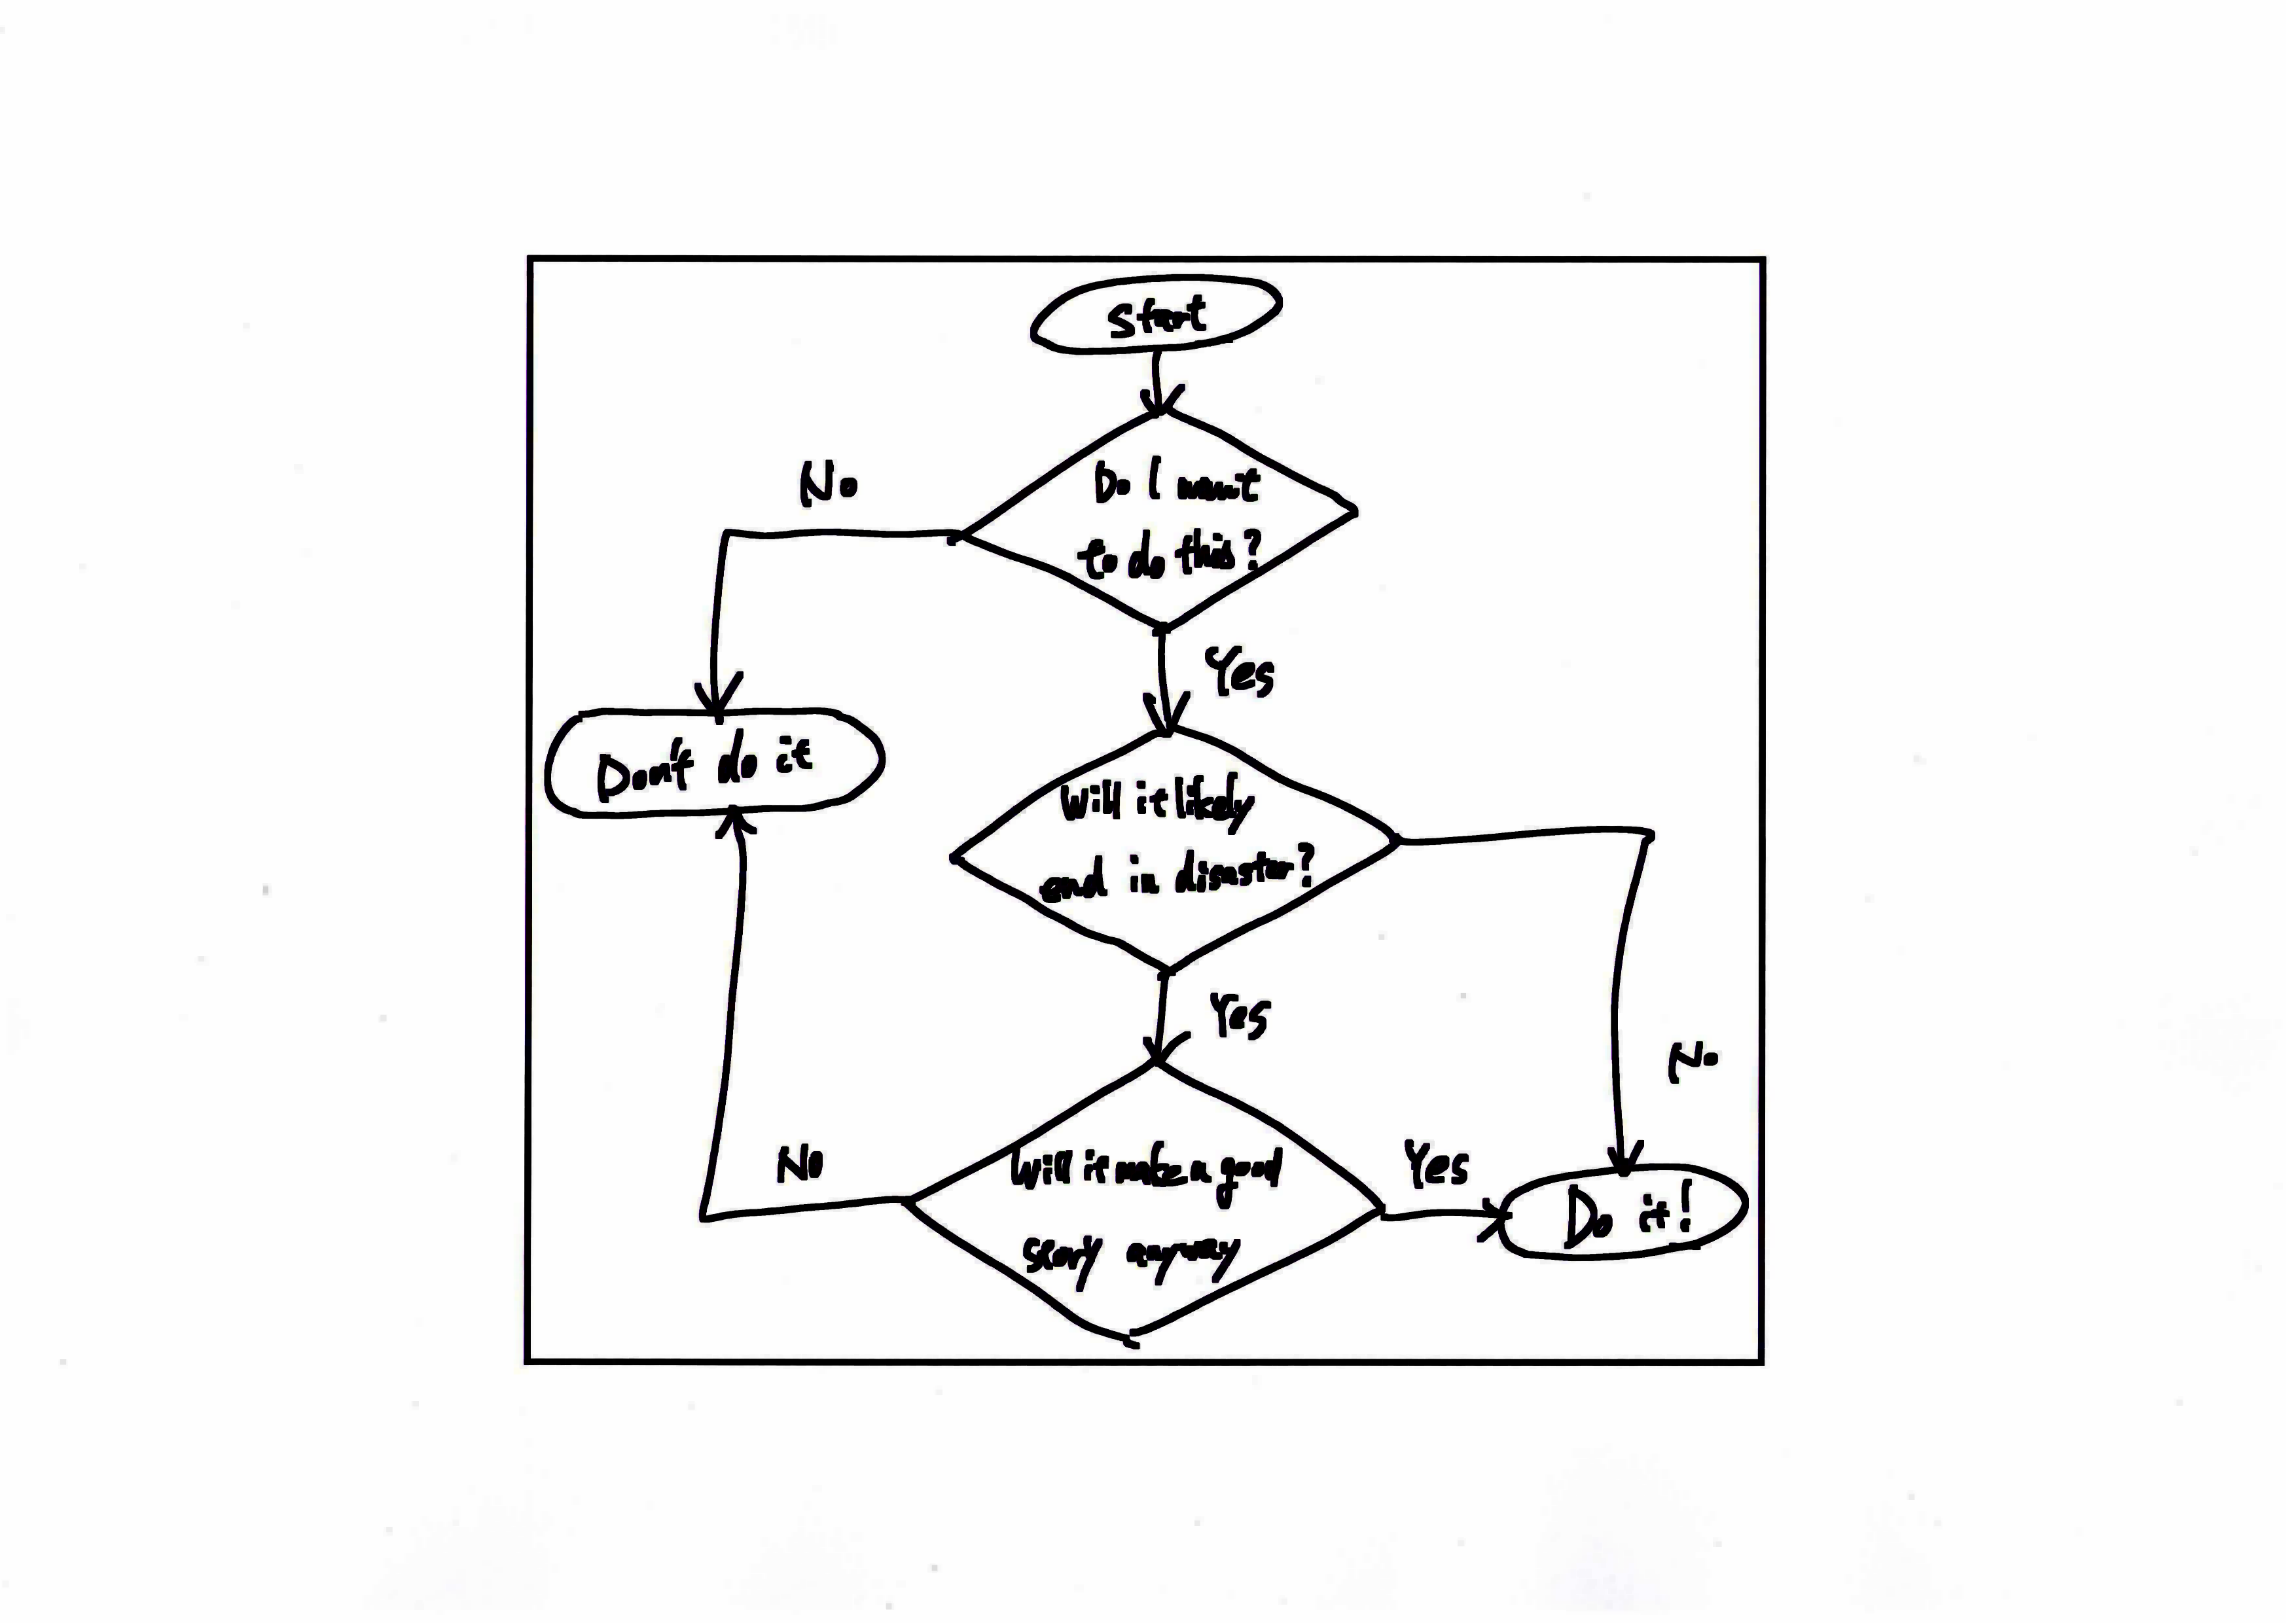 Start
Do I want
to do this?
No
Yes
Don't do it
Will it likely
end in disaster?
No
Yes
Will it make a good
story anyway
No
Yes
Do it!